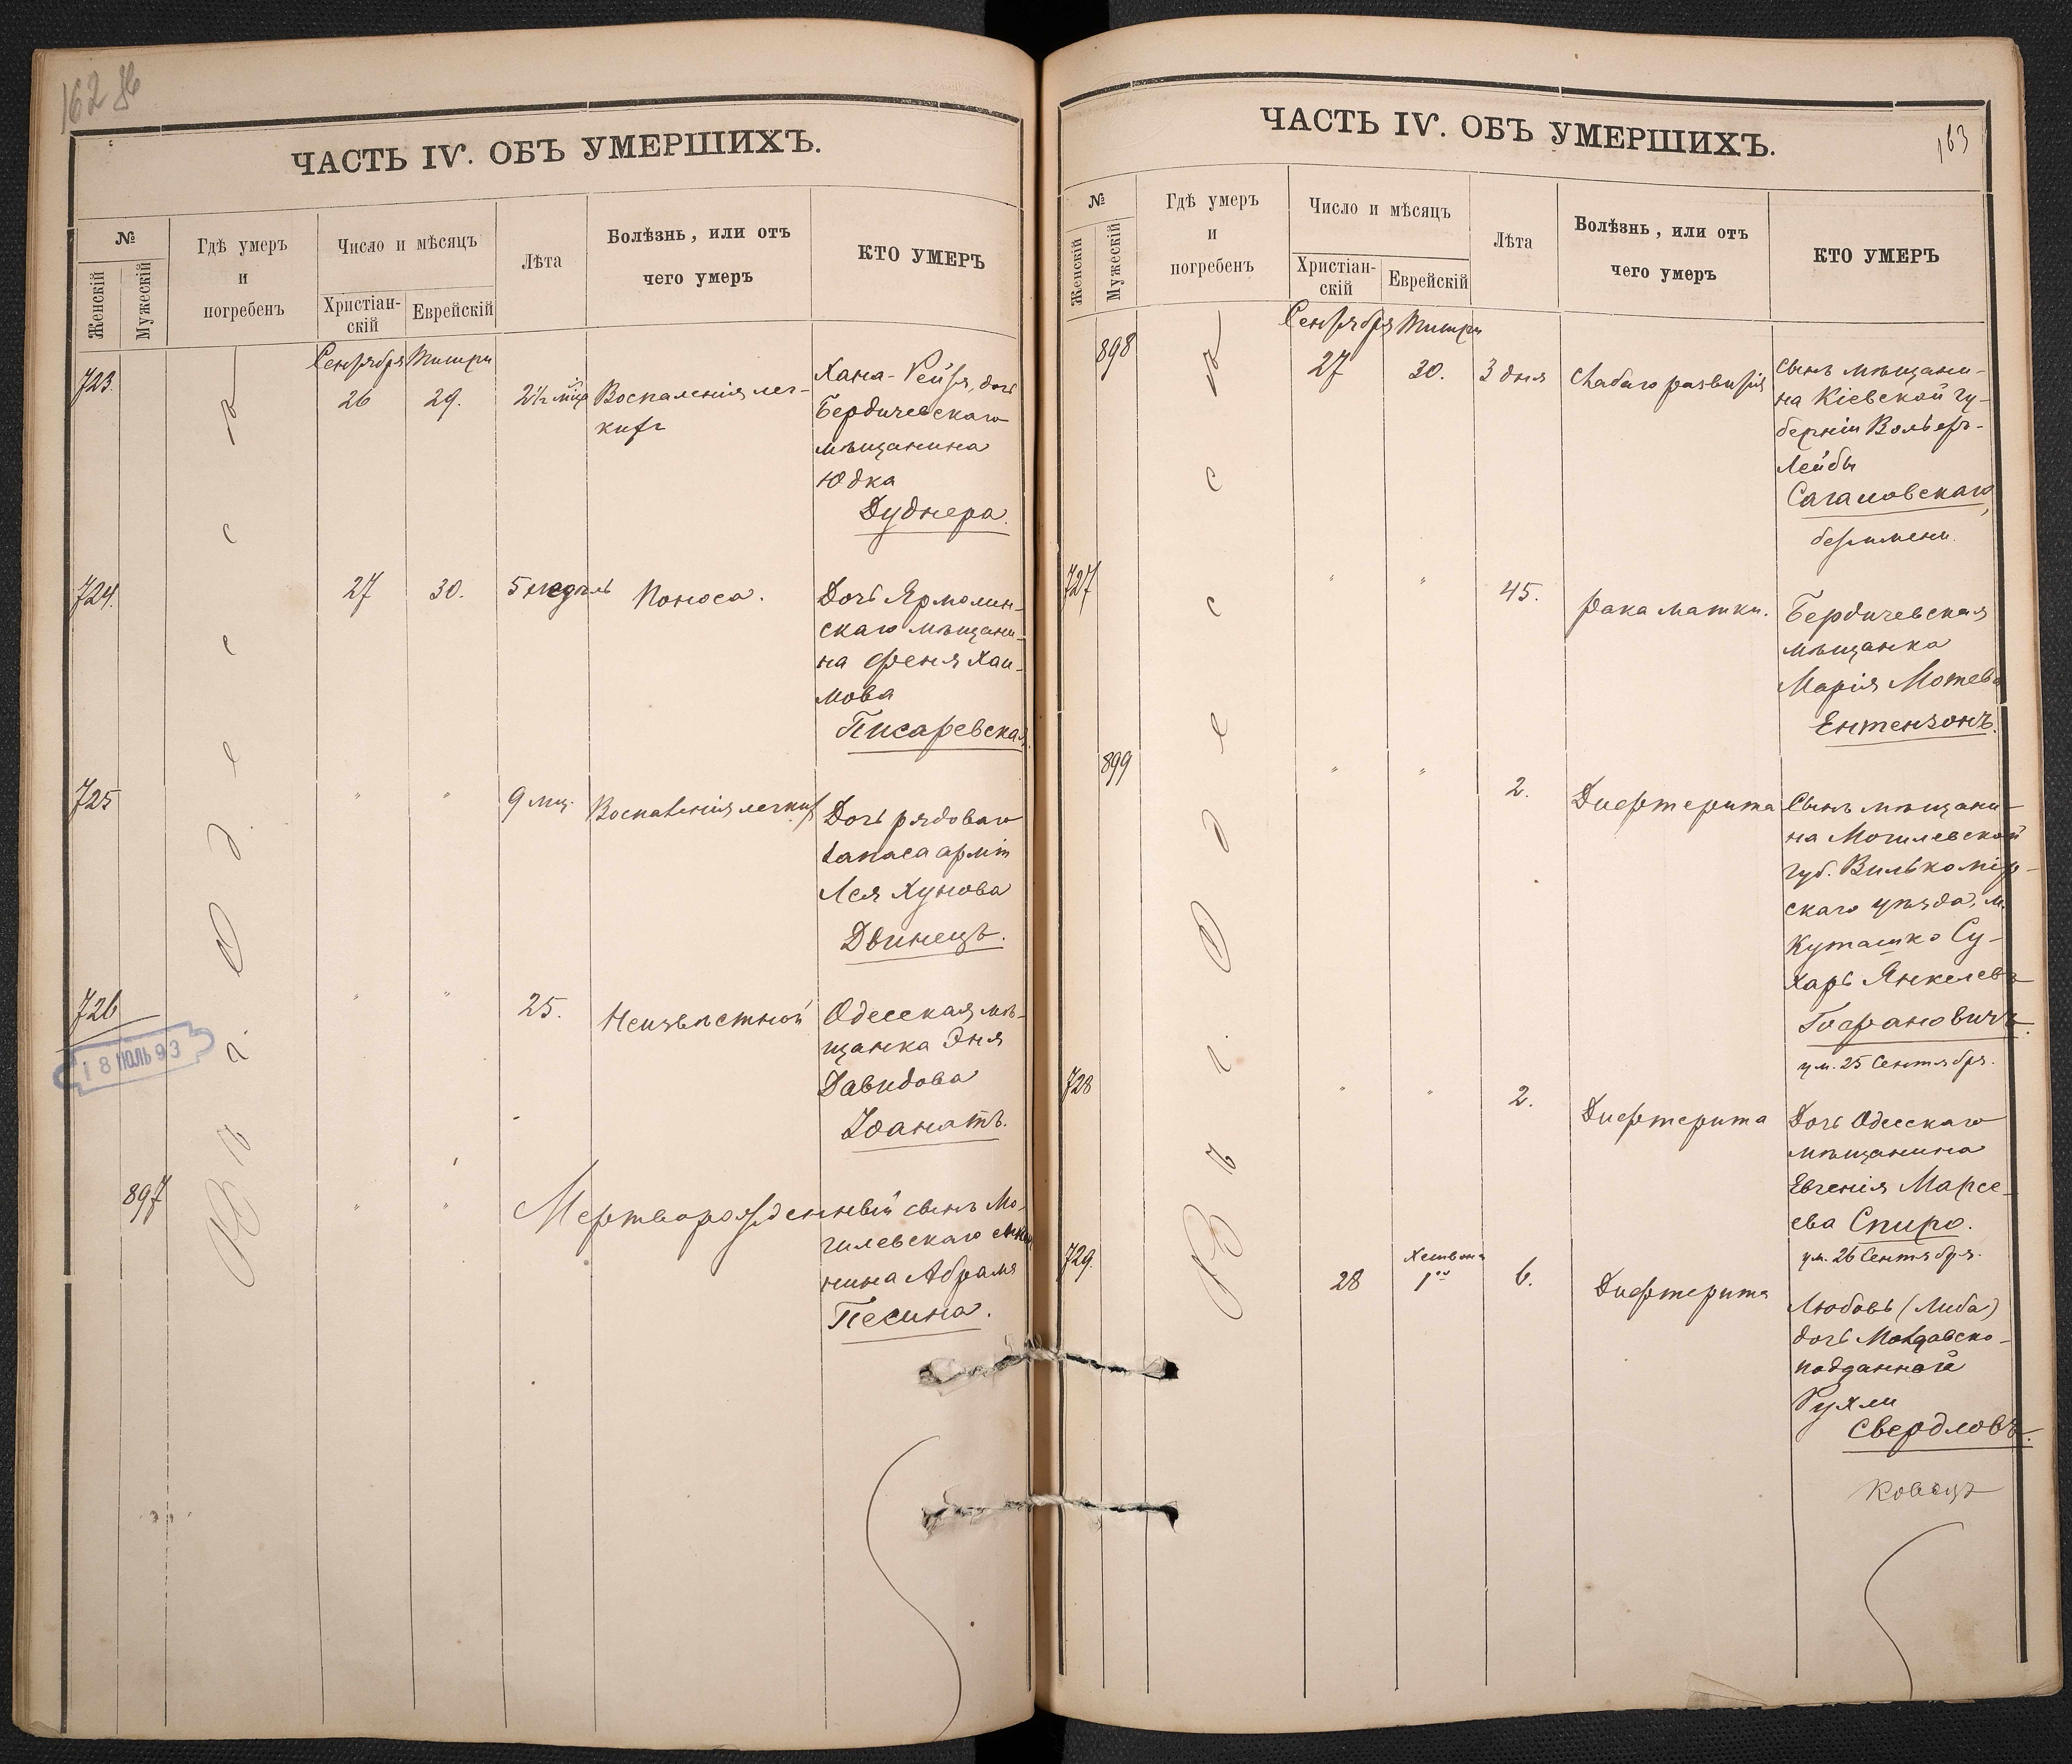 162 об
ЧАСТЬ IV. ОБЪ УМЕРШИХЪ.
№
Женскій
Мужескій
Гдѣ умеръ
и
погребенъ
Число и мѣсяцъ
Христіан-
скій
Еврейскій
Лѣта
Болѣзнь, или отъ
чего умеръ
КТО УМЕРЪ
Въ г. Одессѣ
Сентября Тишри
723. 26 29. 2½ мѣс Воспаленія лег-
кихъ
Хана-Рейзя, дочь
Бердичевскаго
мѣщанина
Юдка
Дуднера.
724. 27 30. 5 недѣль Поноса.
Дочь Ярмолин-
скаго мѣщани-
на Феня Хаи-
мова
Писаревская.
725 " " 9 мц. Воспаленія легкихъ
Дочь рядоваго
запаса арміи
Лея Хунова
Двинецъ.
726 " " 25. Неизвѣстной
Одесская мѣ-
щанка Эня
Давидова
Зданатъ.
18 ІЮЛЬ 93
897 " " Мертворожденный сынъ Мо-
гилевскаго
Абрама
Песина.
163
ЧАСТЬ IV. ОБЪ УМЕРШИХЪ.
№
Женскій
Мужескій
Гдѣ умеръ
и
погребенъ
Число и мѣсяцъ
Христіан-
скій
Еврейскій
Лѣта
Болѣзнь, или отъ
чего умеръ
КТО УМЕРЪ
Въ г. Одессѣ
Сентября Тишри
898 27 30. 3 дня Слабаго развитія
Сынъ мѣщани-
на Кіевской гу-
берніи Вольфъ-
Лейбы
Сагаловскаго,
безъ имени.
727 " " 45. Рака матки.
Бердичевская
мѣщанка
Марія Мотева
Ентензонъ.
899 " " 2. Дифтерита
Сынъ мѣщани-
на Могилевской
губ. Вилькомір-
скаго уѣзда, м.
Куташко Су-
харь Янкелевъ
Гофрановичъ.
ум. 25 Сентября.
728 " " 2. Дифтерита
Дочь Одесскаго
мѣщанина
Евгенія Марсе-
ева Спиро.
ум. 26 Сентября.
Хешвона
729. 28 1го 6. Дифтерита
Любовь (Либа)
дочь Молдавско-
подданной
Рухли
Свердловъ.